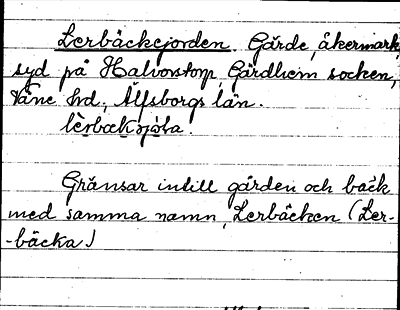 Lerbäckejorden. Gärde, åkermark,
syd på Halvorstorp, Gärdhem socken,
Väne hd., Älfsborgs län.
Gränsar intill gården och bäck
med samma namn, Lerbäcken (Ler-
-bäcka)